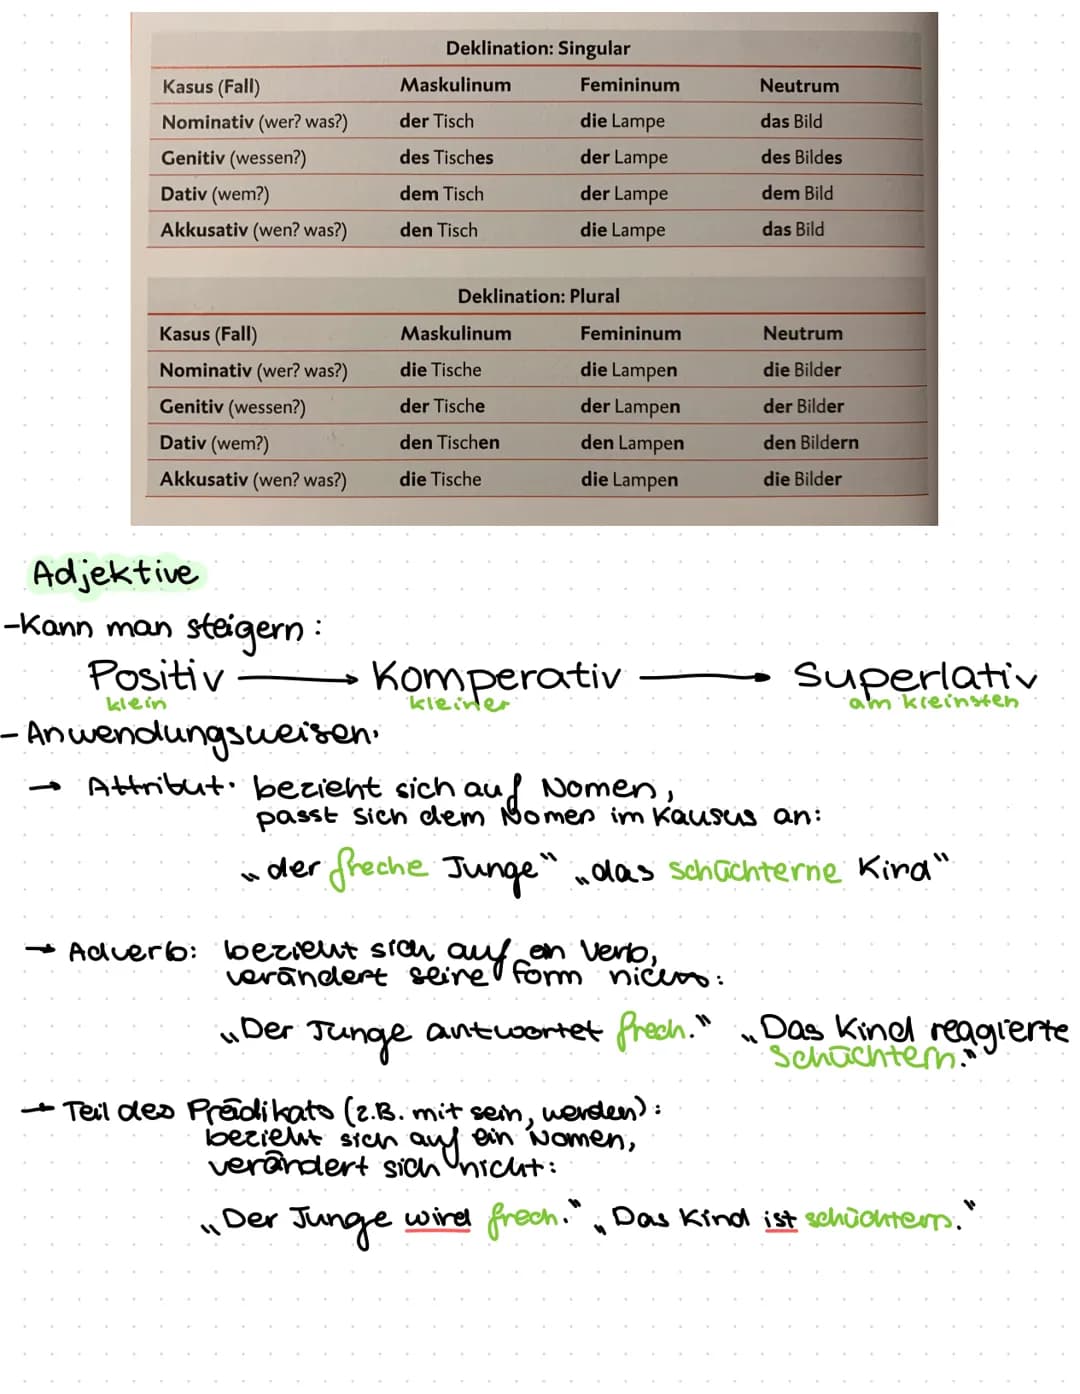 Deklination: Singular
Kasus (Fall) Maskulinum Femininum Neutrum
Nominativ (wer? was?) der Tisch die Lampe das Bild
Genitiv (wessen?) des Tisches der Lampe des Bildes
Dativ (wem?) dem Tisch der Lampe dem Bild
Akkusativ (wen? was?) den Tisch die Lampe das Bild
Deklination: Plural
Kasus (Fall) Maskulinum Femininum Neutrum
Nominativ (wer? was?) die Tische die Lampen die Bilder
Genitiv (wessen?) der Tische der Lampen der Bilder
Dativ (wem?) den Tischen den Lampen den Bildern
Akkusativ (wen? was?) die Tische die Lampen die Bilder
Adjektive
-Kann man steigern:
Positiv → Komperativ → Superlativ
klein kleiner am kleinsten
- Anwendungsweisen:
→ Attribut: bezieht sich auf Nomen,
passt sich dem Nomen im Kausus an:
„der freche Junge" „das schüchterne Kind"
→ Adverb: bezieht sich auf ein Verb,
verändert seine Form nicht:
„Der Junge antwortet frech." „Das Kind reagierte
schüchtern."
→ Teil des Prädikats (z.B. mit sein, werden):
bezieht sich auf ein Nomen,
verändert sich nicht:
„Der Junge wird frech." „Das Kind ist schüchtern."